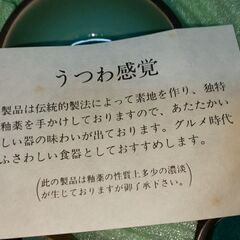 うつわ感覚
製品は伝統的製法によって素地を作り、独特
釉薬を手かけしておりますので、あたたかい
しい器の味わいが出ております。グルメ時代
ふさわしい食器としておすすめします。
(此の製品は釉薬の性質上多少の濃淡
が生じておりますが御了承下さい。)